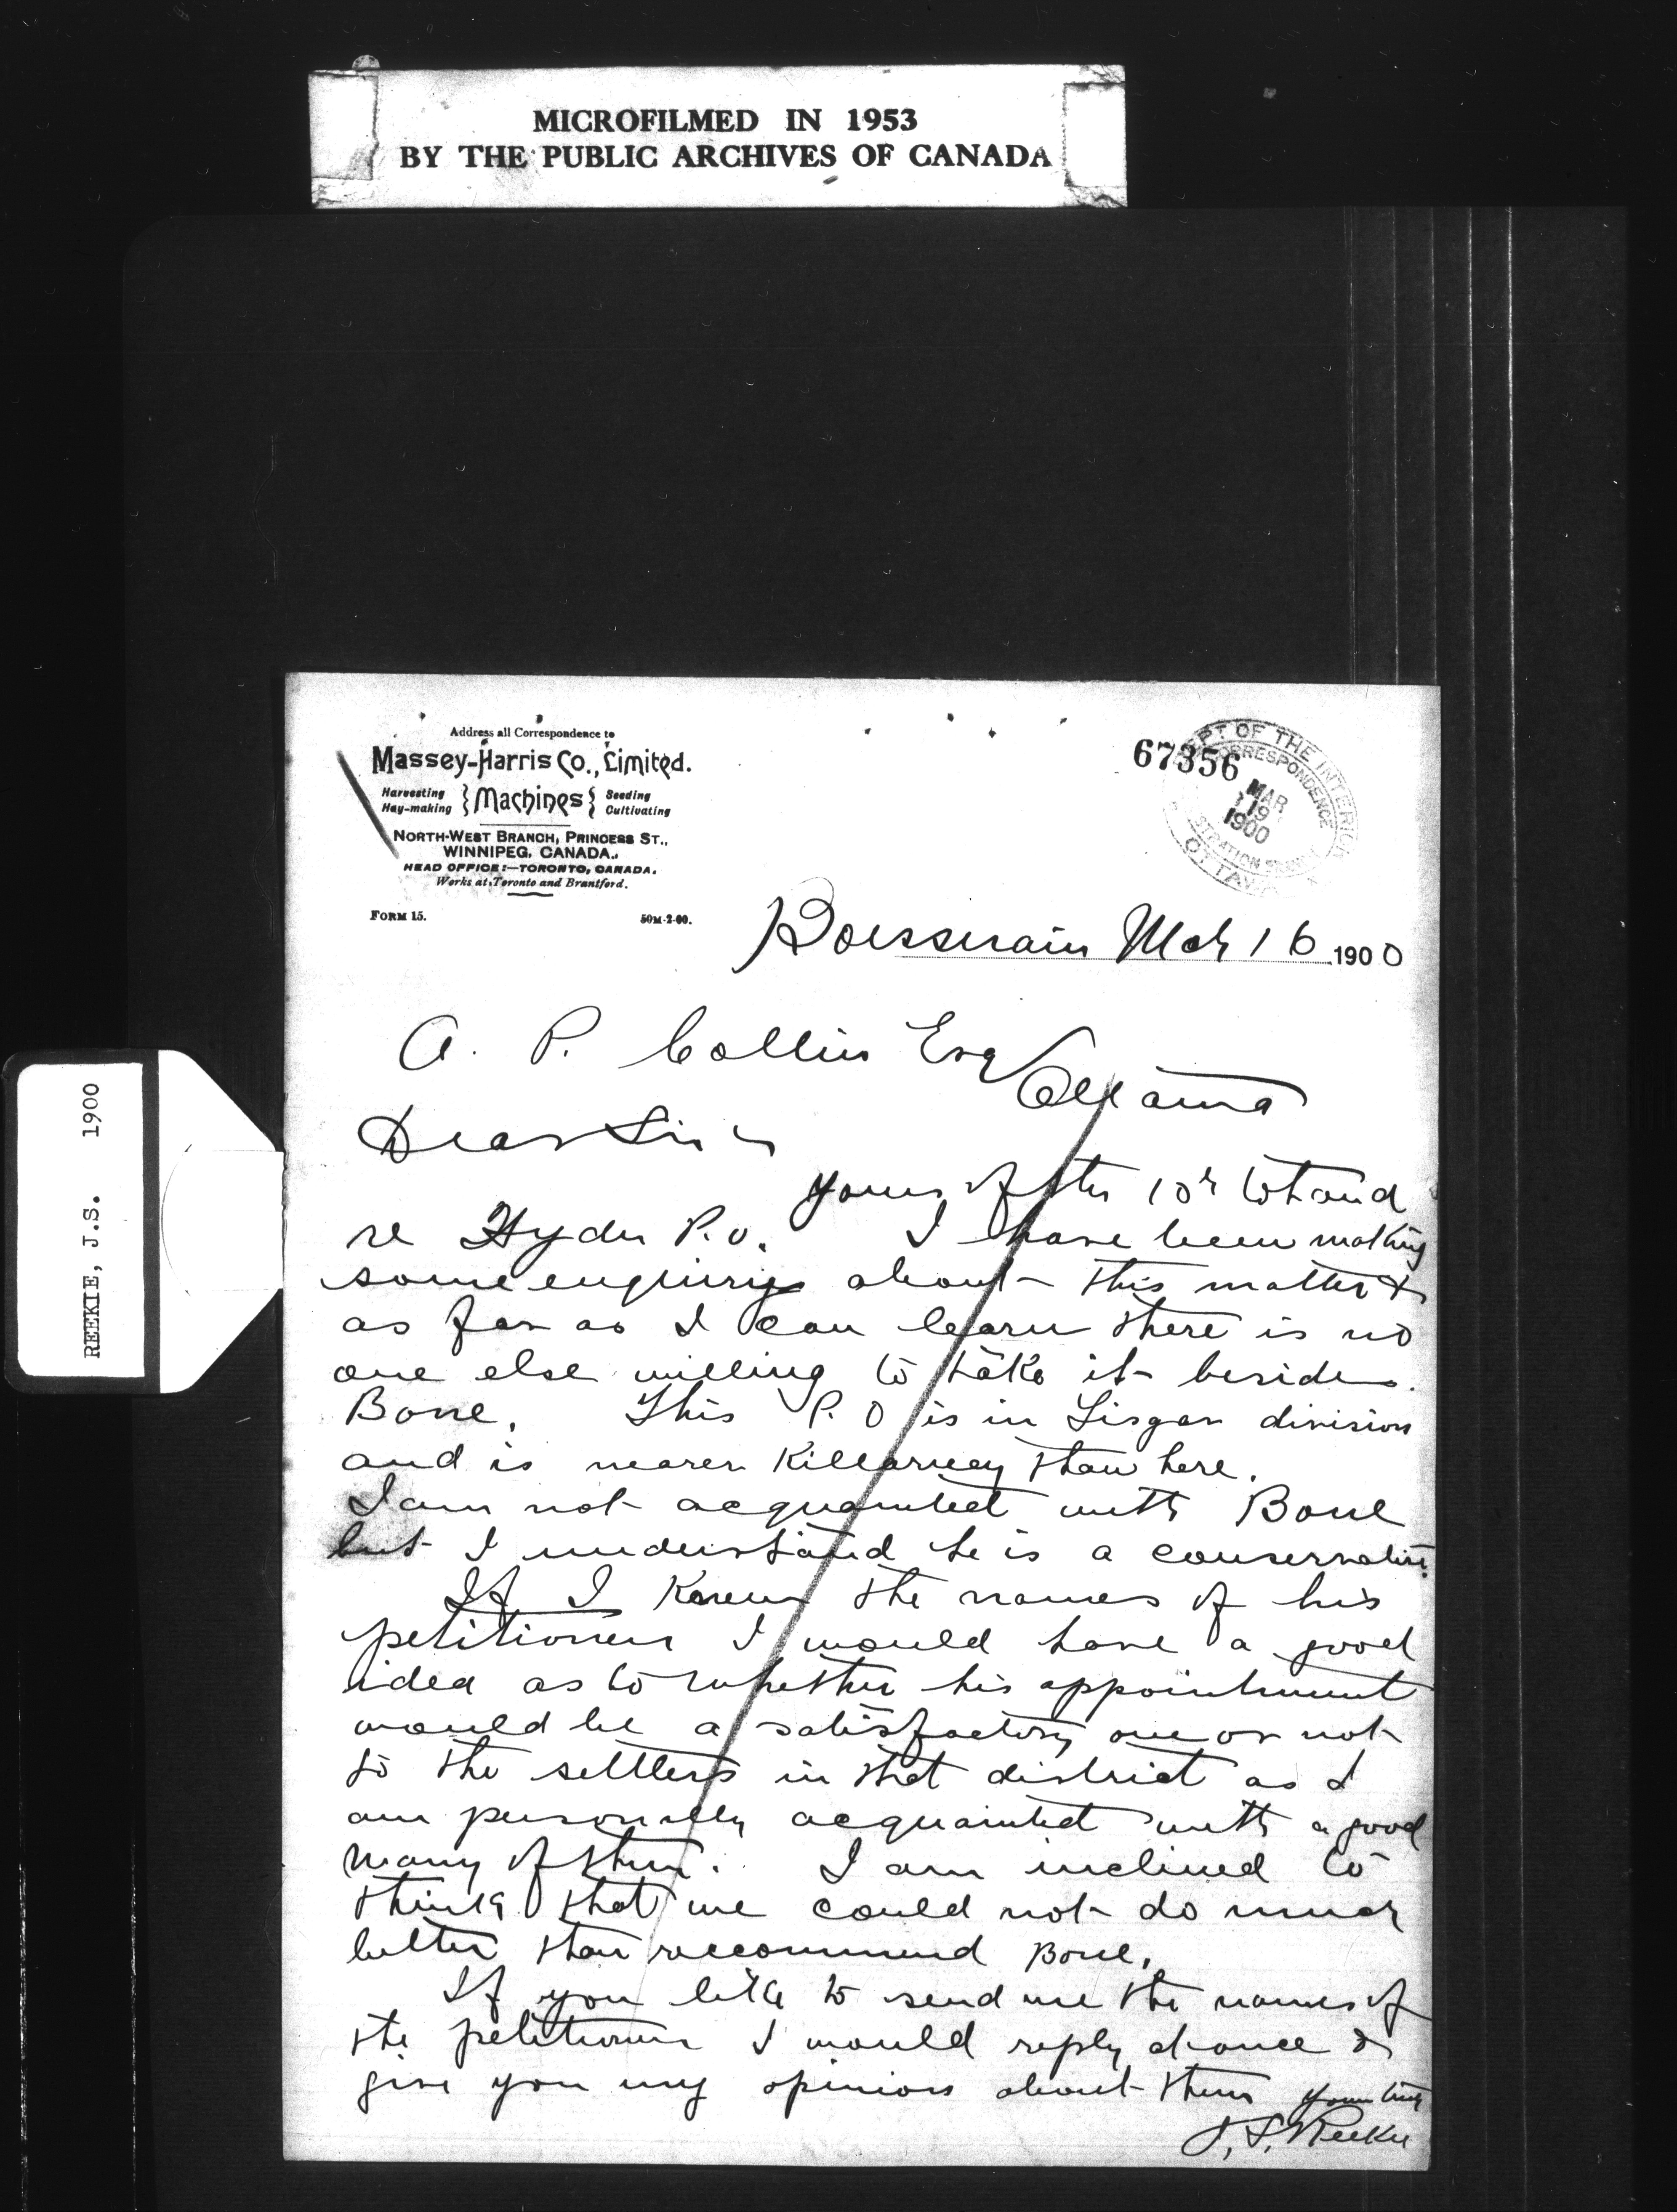 MICROFILMED IN 1953
BY THE PUBLIC ARCHIVES OF CANADA
REEKIE, J.S. 1900
Address all Correspondence to
Massey-Harris Co., Limited.
Harvesting Hay-making } Machines { Seeding Cultivating
NORTH-WEST BRANCH, PRINCESS ST.,
WINNIPEG, CANADA.
HEAD OFFICE:—TORONTO, CANADA.
Works at Toronto and Brantford.
FORM 15. 50M-2-00.
67356
DEPT OF THE INTERIOR
CORRESPONDENCE
MAR
19
1900
OTTAWA
Boissevain Mch 16 1900
A. P. Collins Esq
Ottawa
Dear Sir
Yours of the 10th to hand
re Hyder P.O. I have been making
some enquiries about this matter &
as far as I can learn there is no
one else willing to take it besides
Bone. This P.O is in Lisgar division
and is nearer Killarney than here.
I am not acquainted with Bone
but I understand he is a conservative.
If I knew the names of his
petitioners I would have a good
idea as to whether his appointment
would be a satisfactory one or not
to the settlers in that district as I
am personally acquainted with a good
many of them. I am inclined to
think that we could not do much
better than reccommend Bone.
If you like to send me the names of
the petitioners I would reply at once &
give you my opinion about them Yours truly
J. S. Reekie